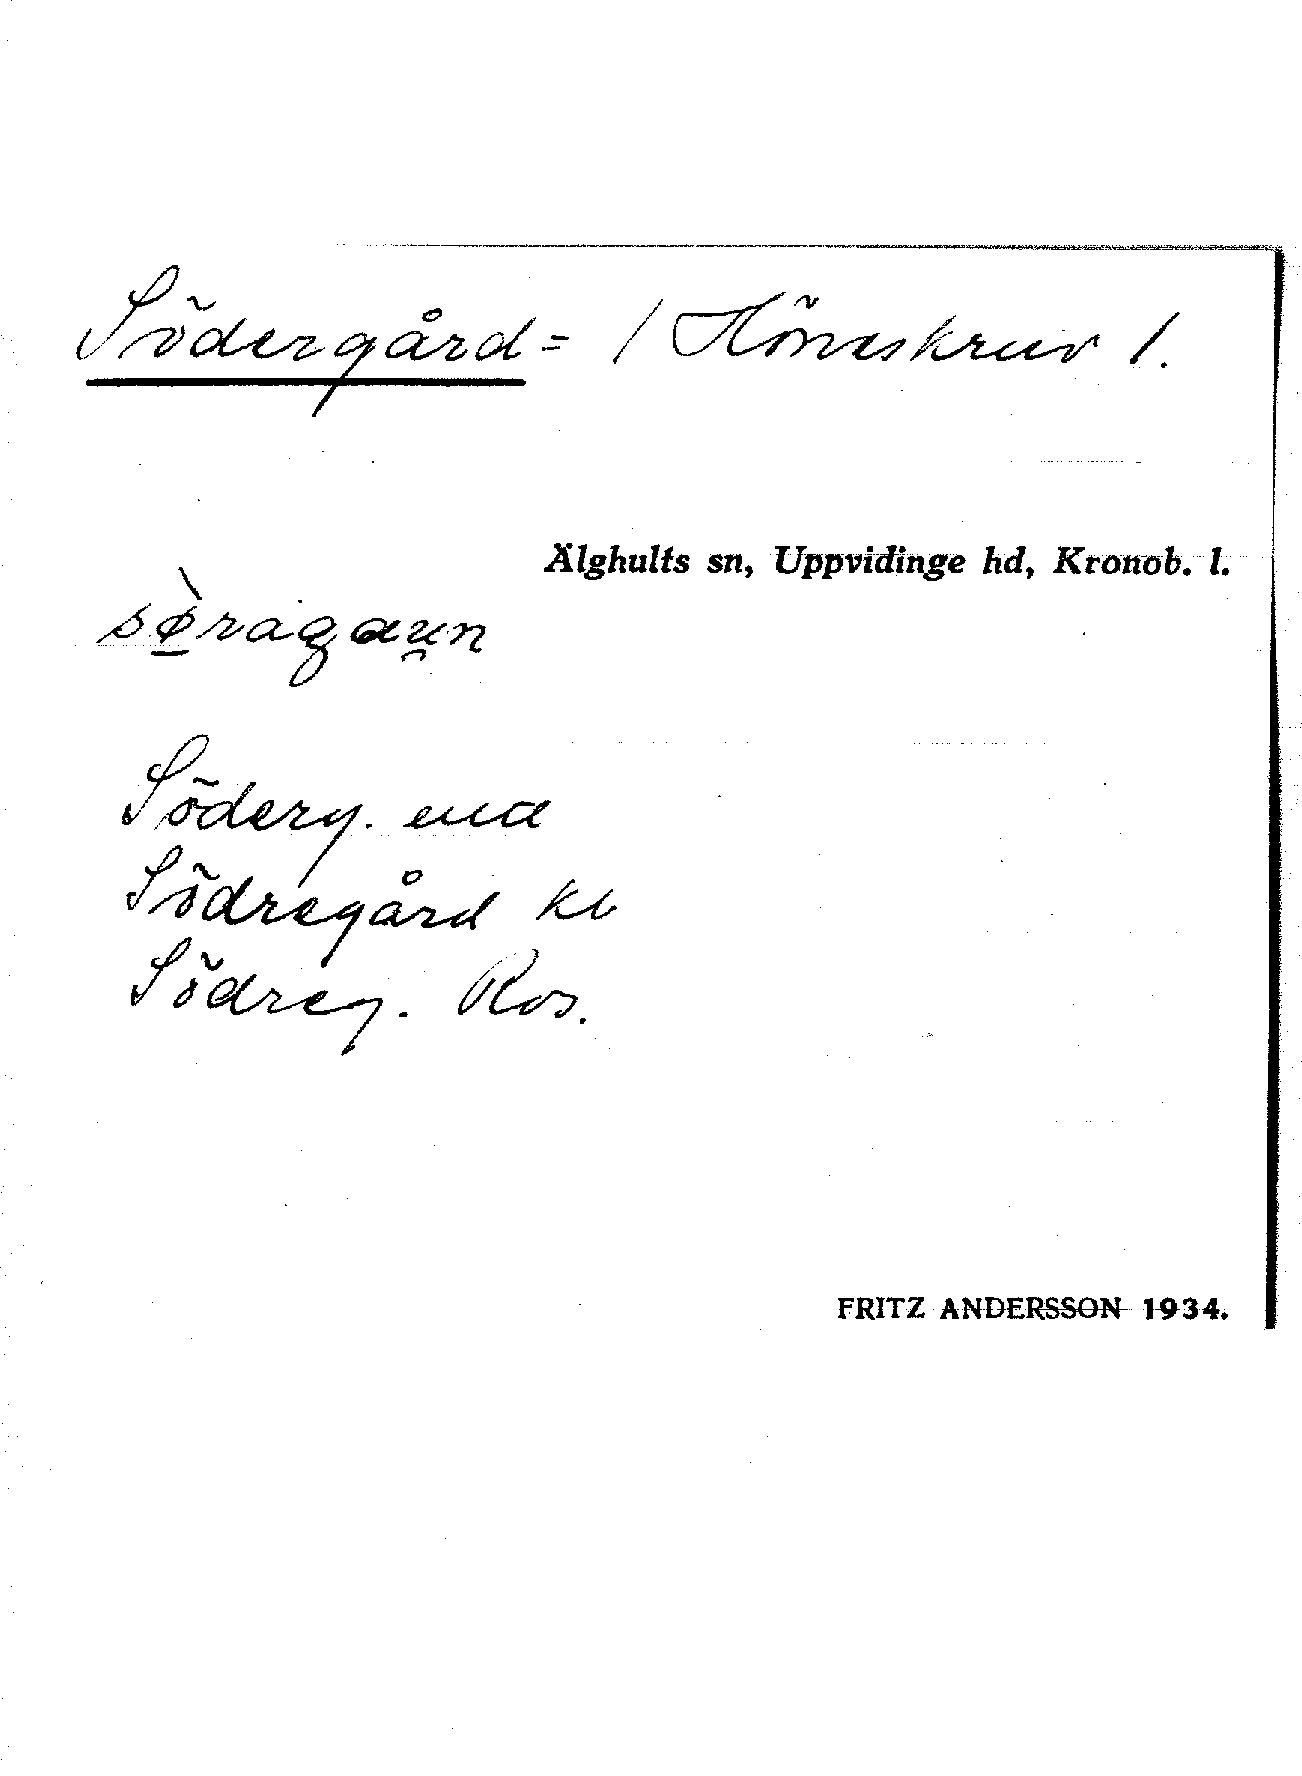 Södergård= / Höneskruv /.
Älghults sn, Uppvidinge hd, Kronob. l.
sø̀ragau̯n
Söderg. eud
Södregård kb
Södreg. Ros.
FRITZ ANDERSSON 1934.